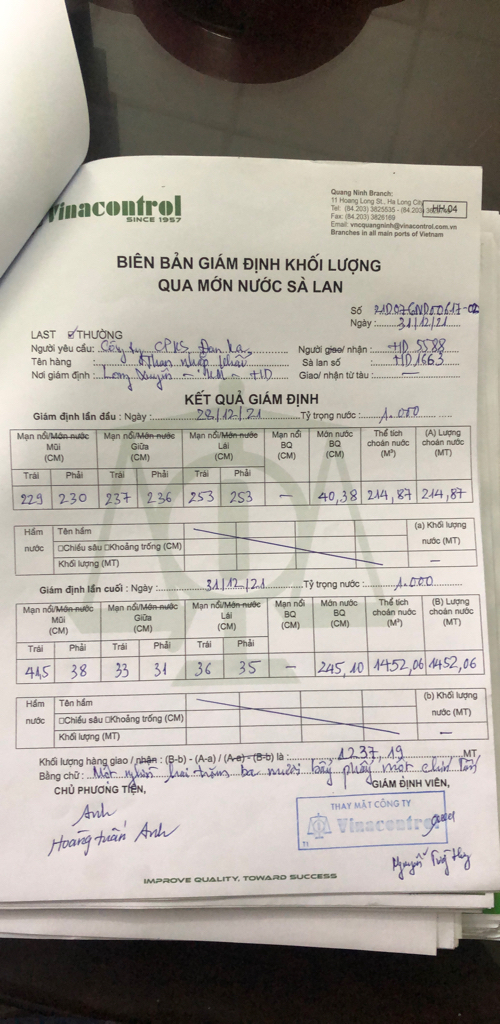 Vinacontrol
SINCE 1957
Quang Ninh Branch:
11 Hoang Long St., Ha Long City
Tel: (84.203) 3825535 - (84.203)
Fax: (84.203) 3826169
Email: vncquangninh@vinacontrol.com.vn
Branches in all main ports of Vietnam
HH.04
BIÊN BẢN GIÁM ĐỊNH KHỐI LƯỢNG
QUA MỚN NƯỚC SÀ LAN
Số 21D07GND00617-02
Ngày: 31/12/21
LAST THƯỜNG
Người yêu cầu: Công ty CPKS Đan Ka Người giao/ nhận : HD 5588
Tên hàng : Than nhập khẩu Sà lan số : HD 1663
Nơi giám định : Long Xuyên - - HD Giao/ nhận từ tàu : —
KẾT QUẢ GIÁM ĐỊNH
Giám định lần đầu : Ngày : 28/12/21 Tỷ trọng nước : 1.000
Mạn nổi/Mớn nước Mũi (CM) Mạn nổi/Mớn nước Giữa (CM) Mạn nổi/Mớn nước Lái (CM) Mạn nổi BQ (CM) Mớn nước BQ (CM) Thể tích choán nước (M³) (A) Lượng choán nước (MT)
Trái Phải Trái Phải Trái Phải
229 230 237 236 253 253 — 40,38 214,87 214,87
Hầm nước Tên hầm (a) Khối lượng nước (MT)
□Chiều sâu □Khoảng trống (CM)
Khối lượng (MT) —
Giám định lần cuối : Ngày : 31/12/21 Tỷ trọng nước : 1.000
Mạn nổi/Mớn nước Mũi (CM) Mạn nổi/Mớn nước Giữa (CM) Mạn nổi/Mớn nước Lái (CM) Mạn nổi BQ (CM) Mớn nước BQ (CM) Thể tích choán nước (M³) (B) Lượng choán nước (MT)
Trái Phải Trái Phải Trái Phải
41,5 38 33 31 36 35 — 245,10 1452,06 1452,06
Hầm nước Tên hầm (b) Khối lượng nước (MT)
□Chiều sâu □Khoảng trống (CM)
Khối lượng (MT) —
Khối lượng hàng giao / nhận : (B-b) - (A-a) / (A-a) - (B-b) là : 1237,19 MT
Bằng chữ : Một nghìn hai trăm ba mươi bảy phẩy một chín tấn
CHỦ PHƯƠNG TIỆN, GIÁM ĐỊNH VIÊN,
THAY MẶT CÔNG TY
Vinacontrol
71
Anh
Hoàng Tuấn Anh
Nguyễn Huy
IMPROVE QUALITY, TOWARD SUCCESS